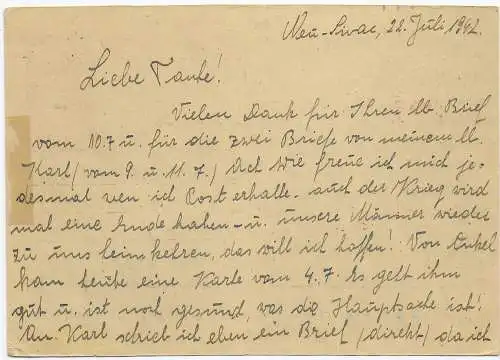 Neu-Sivac, 22. Juli, 1942.
Liebe Tante!
Vielen Dank für Ihren lb. Brief
vom 10.7 u. für die zwei Briefe von meinem lb.
Karl (vom 9. u. 11.7.) Ach wie freue ich mich je-
desmal wen ich Post erhalle. auch der Krieg wird
mal eine Ende haben - u. unsere Männer wieder
zu uns heimkehren, das will ich hoffen! Von Onkel
kam heute eine Karte vom 4.7. Es geht ihm
gut u. ist noch gesund, was die Hauptsache ist!
An Karl schrieb ich eben ein Brief (direkt) da ich